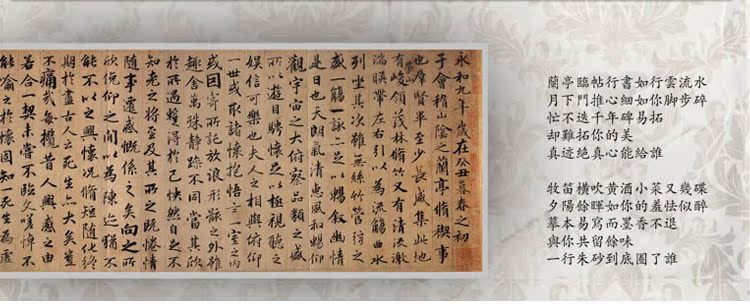 永和九年歲在癸丑暮春之初
于會稽山陰之蘭亭脩稧事
也羣賢畢至少長咸集此地
有崇山峻領茂林脩竹又有清流激
湍暎帶左右引以為流觴曲水
列坐其次雖無絲竹管弦之
盛一觴一詠亦足以暢敘幽情
是日也天朗氣清惠風和暢仰
觀宇宙之大俯察品類之盛
所以遊目騁懷足以極視聽之
娛信可樂也夫人之相與俯仰
一世或取諸懷抱悟言一室之內
或因寄所託放浪形骸之外雖
趣舍萬殊靜躁不同當其欣
於所遇蹔得於己怏然自足不
知老之將至及其所之既惓情
隨事遷感慨係之矣向之所
欣俛仰之間以為陳迹猶不
能不以之興懷況脩短隨化終
期於盡古人云死生亦大矣豈
不痛哉每攬昔人興感之由
若合一契未嘗不臨文嗟悼不
能喻之於懷固知一死生為虛
蘭亭臨帖行書如行雲流水
月下門推心細如你脚步碎
忙不迭千年碑易拓
却難拓你的美
真迹絕真心能給誰
牧笛橫吹黃酒小菜又幾碟
夕陽餘暉如你的羞怯似醉
摹本易寫而墨香不退
與你共留餘味
一行朱砂到底圈了誰